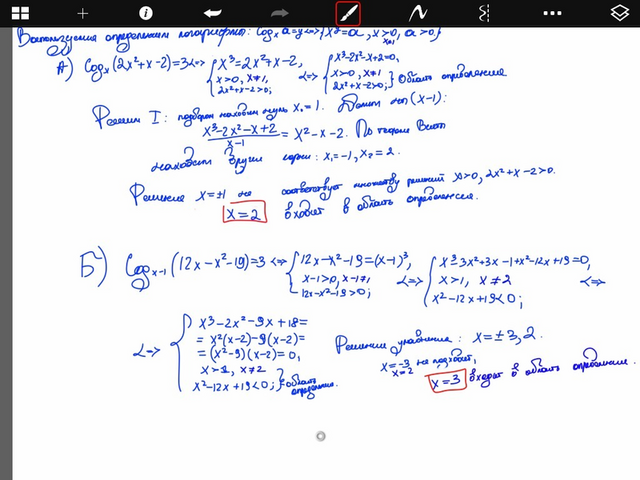 Воспользуемся определением логарифма: log_x a = y <=> {x^y = a, x>0, x≠1, a>0}
А) log_x (2x²+x-2)=3 <=> { x³=2x²+x-2, x>0, x≠1, 2x²+x-2>0; <=> { x³-2x²-x+2=0, x>0, x≠1 2x²+x-2>0; } Область определения
Решим I: подбором находим нуль x₀=1. Делим на (x-1):
(x³-2x²-x+2)/(x-1) = x²-x-2. По теореме Виета
находим другие корни: x₁=-1, x₂=2.
Решение x=±1 не соответствует множеству решений x>0, 2x²+x-2>0.
x=2 входит в область определения.
Б) log_{x-1} (12x-x²-19)=3 <=> { 12x-x²-19=(x-1)³, x-1>0, x-1≠1, 12x-x²-19>0; <=> { x³-3x²+3x-1+x²-12x+19=0, x>1, x≠2 x²-12x+19<0; <=>
<=> { x³-2x²-9x+18=
= x²(x-2)-9(x-2)=
= (x²-9)(x-2)=0,
x>1, x≠2
x²-12x+19<0; } область определения.
Решение уравнения: x=±3, 2.
x=-3 x=2 не подходит,
x=3 входит в область определения.